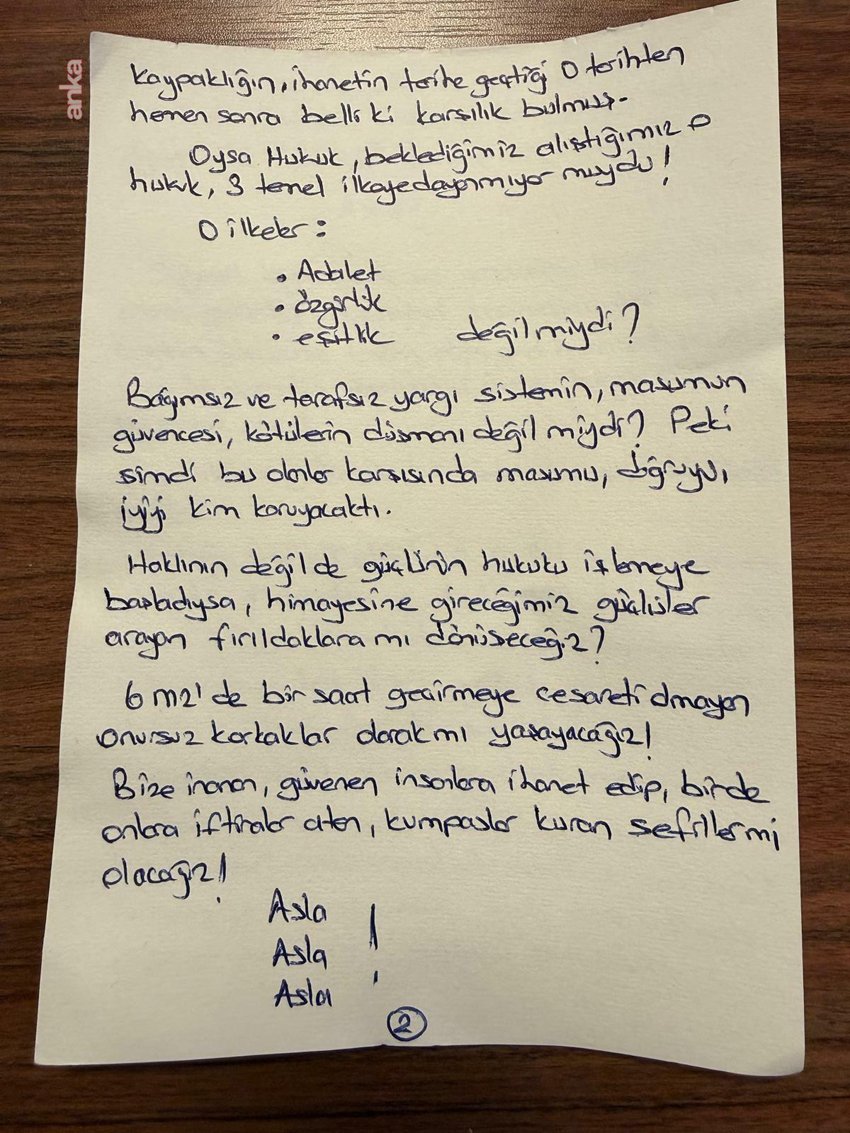 anka
Kaypaklığın, ihanetin tarihe geçtiği O tarihten
hemen sonra belli ki karşılık bulmuş.
Oysa Hukuk, beklediğimiz alıştığımız o
hukuk, 3 temel ilkeye dayanmıyor muydu!
O ilkeler:
• Adalet
• özgürlük
• eşitlik değil miydi?
Bağımsız ve tarafsız yargı sistemin, masumun
güvencesi, kötülerin düşmanı değil miydi? Peki
şimdi bu olanlar karşısında masumu, doğruyu,
iyiyi kim koruyacaktı.
Haklının değil de güçlünün hukuku işlemeye
başladıysa, himayesine gireceğimiz güçlüler
arayan fırıldaklara mı dönüşeceğiz?
6 m2' de bir saat geçirmeye cesareti olmayan
onursuz korkaklar olarak mı yaşayacağız!
Bize inanan, güvenen insanlara ihanet edip, birde
onlara iftiralar atan, kumpaslar kuran sefiller mi
olacağız!
Asla
Asla !
Asla
2